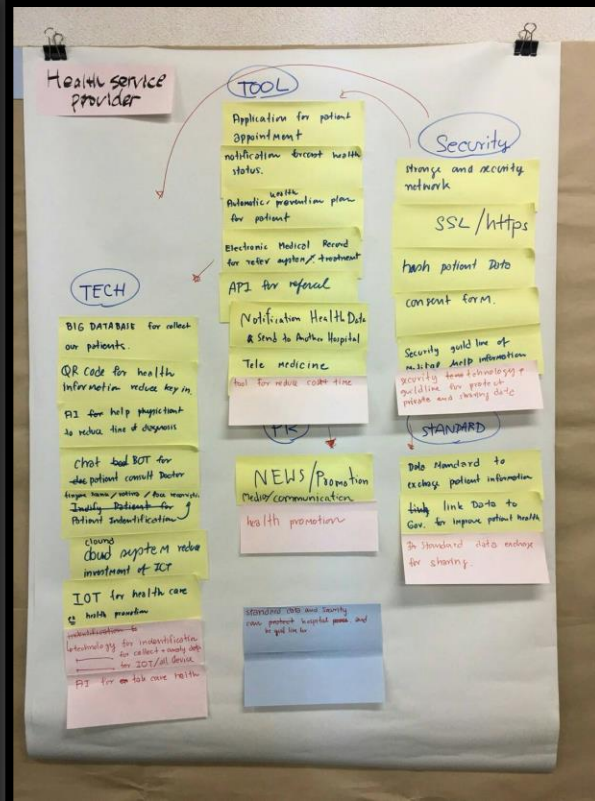 Health service
provider
TOOL
Application for patient
appointment
notification forcont health
status.
Automatic health prevention plan
for patient
Electronic Medical Record
for refer system/treatment
API for referral
Notification Health Data
& Send to Another Hospital
Tele medicine
tool for reduce cost time
Security
stronge and security
network
SSL/https
hash patient Data
consent form.
Security guild line of
information
security technology +
guildline for protect
private and sharing data
TECH
BIG DATABASE for collect
our patients.
QR code for health
Information reduce key in.
AI for help physictiant
to reduce time of diagnosis
chat BOT for
patient consult Doctor
Patient Indentification
clound
cloud system reduce
investment of ICT
IOT for health care
health promotion
technology for indentification
for collect + data
for IOT/all device
AI for care helth
PR
NEWS/Promotion
Media/communication
health promotion
STANDARD
Data standard to
exchage patient information
link Data to
Gov. for improve patient health
standard data exchage
for sharing.
standard data and Security
can protect hospital and
be guild line for